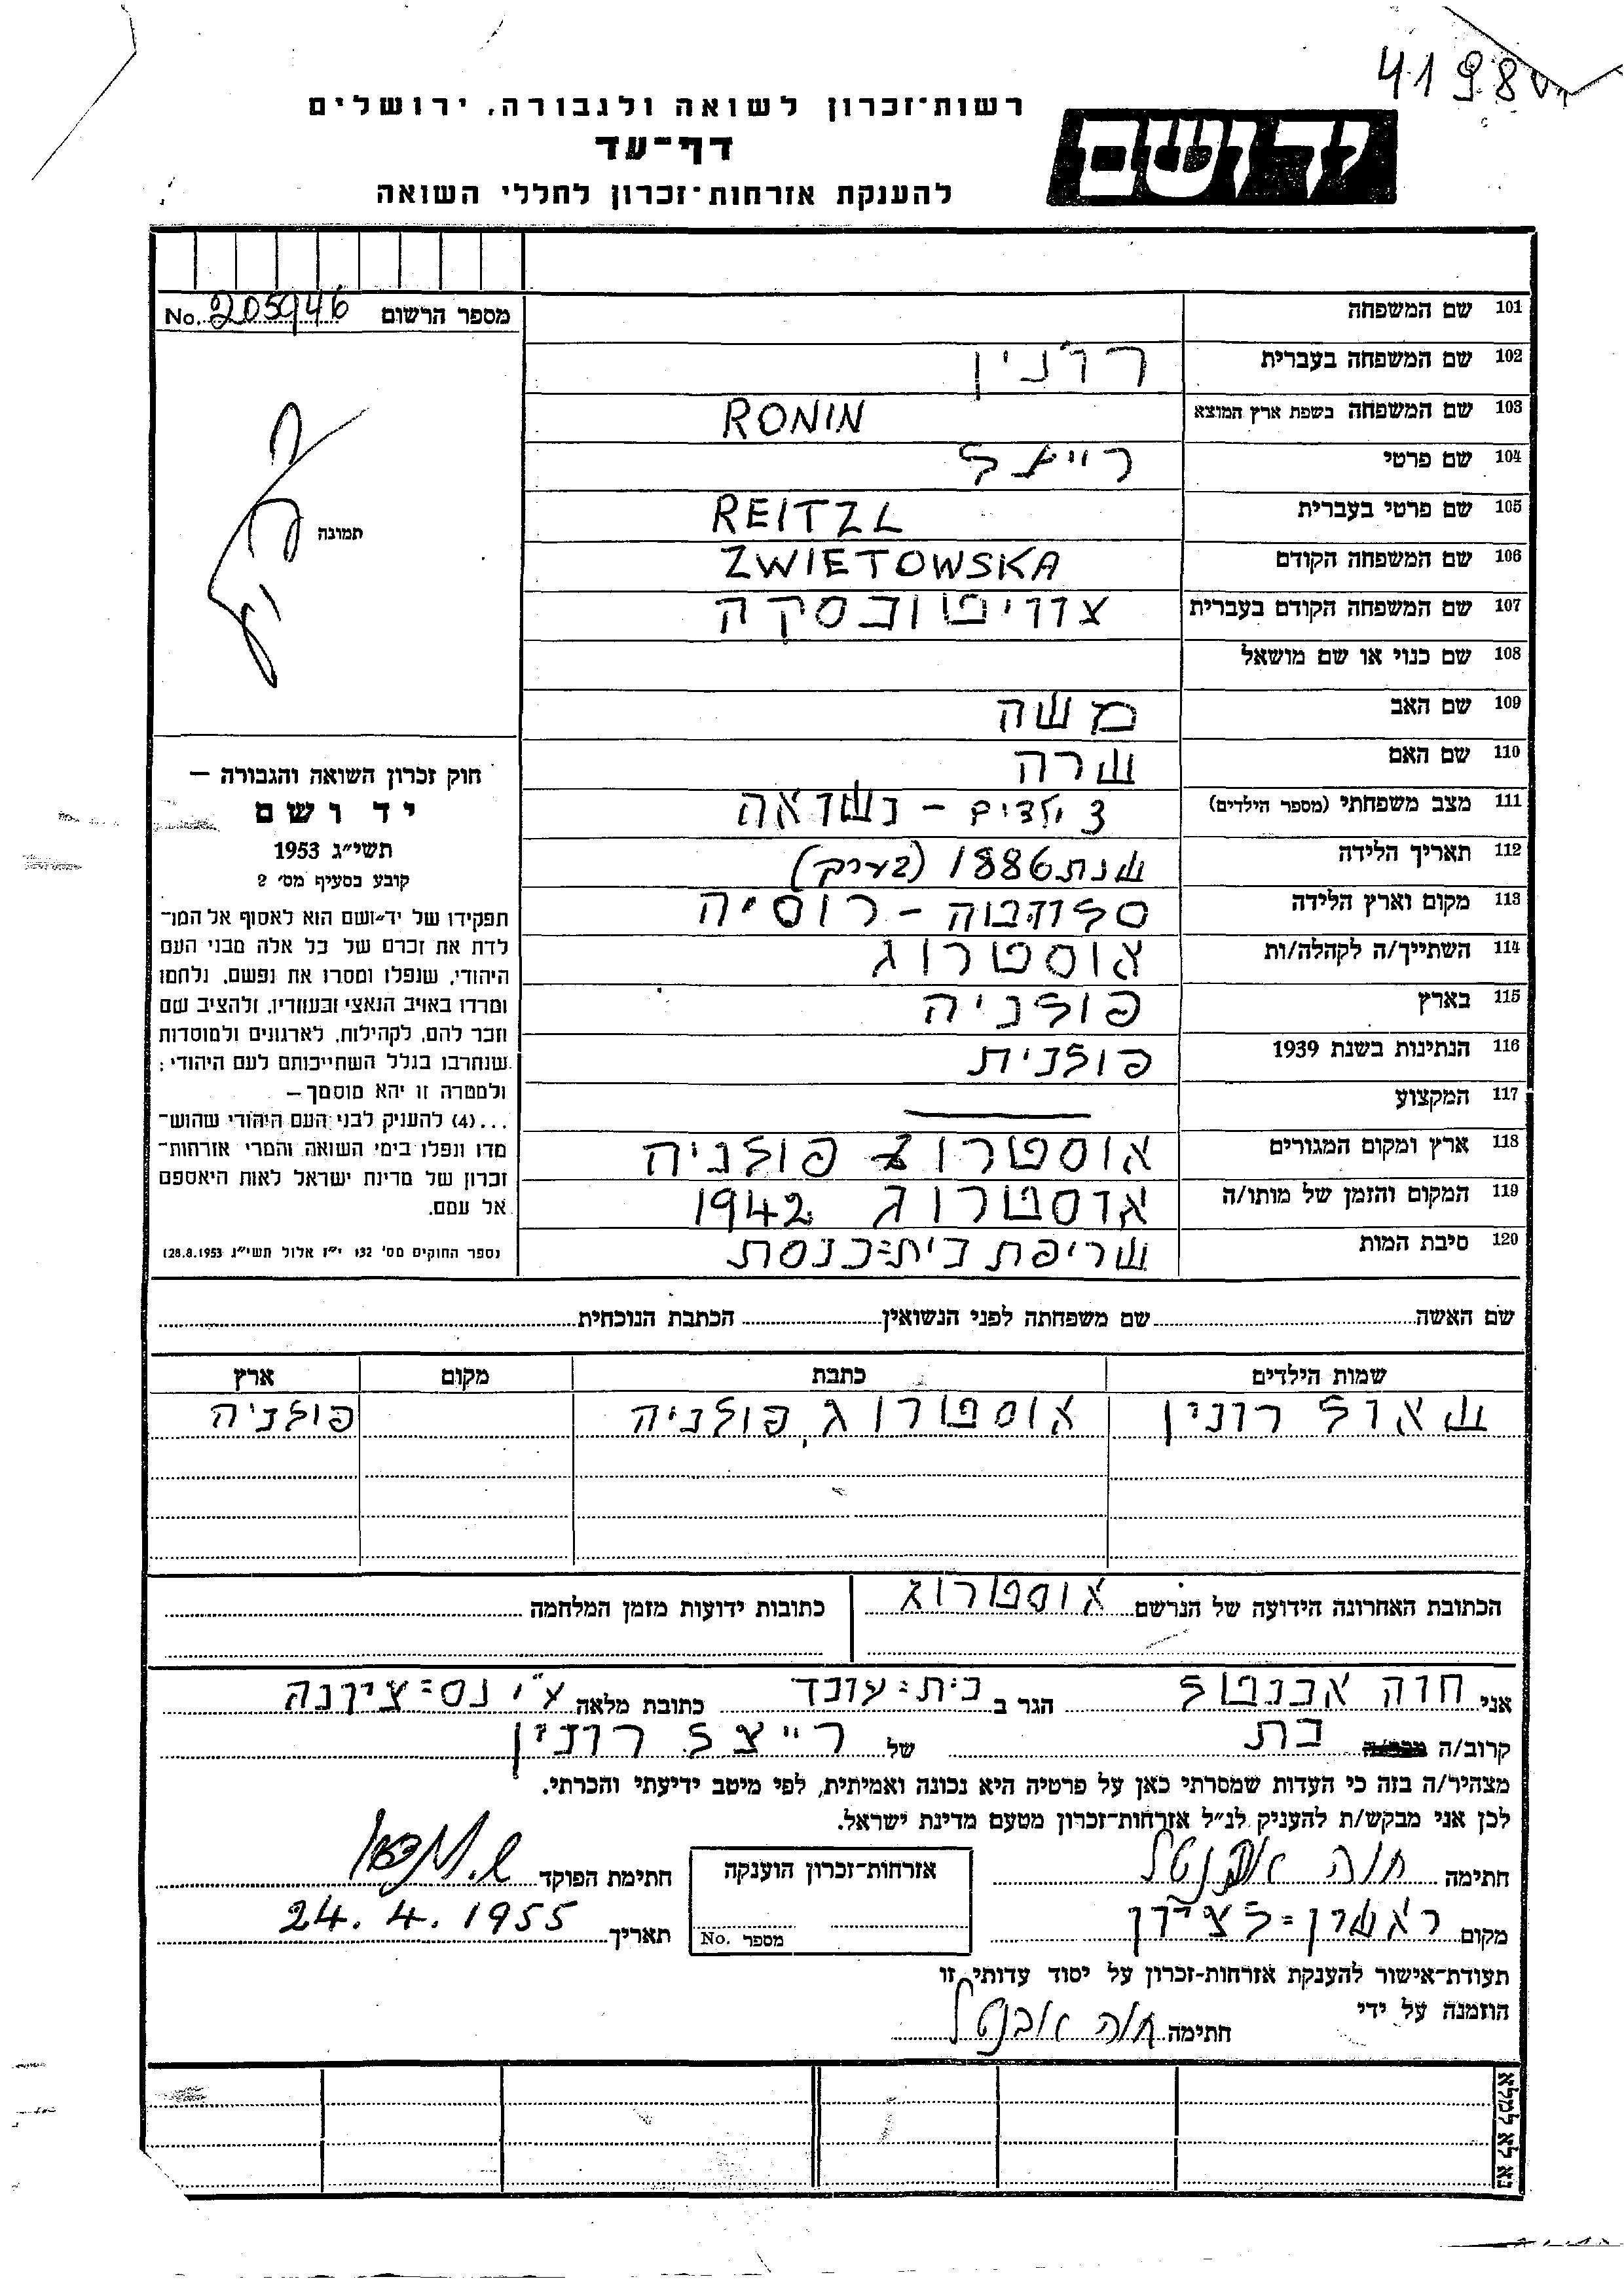 41980
יד ושם
רשות־זכרון לשואה ולגבורה, ירושלים
דף־עד
להענקת אזרחות־זכרון לחללי השואה
מספר הרשום No. 205946
תמונה
101 שם המשפחה
102 שם המשפחה בעברית רונין
103 שם המשפחה בשפת ארץ המוצא RONIN
104 שם פרטי
105 שם פרטי בעברית REITZL
106 שם המשפחה הקודם ZWIETOWSKA
107 שם המשפחה הקודם בעברית צוויטובסקה
108 שם כנוי או שם מושאל
109 שם האב משה
110 שם האם שרה
111 מצב משפחתי (מספר הילדים) 3 ילדים – נשואה
112 תאריך הלידה שנת 1886 (בערך)
113 מקום וארץ הלידה – רוסיה
114 השתייך/ה לקהלה/ות אוסטרוג
115 בארץ פולניה
116 הנתינות בשנת 1939 פולנית
117 המקצוע —
118 ארץ ומקום המגורים אוסטרוג פולניה
119 המקום והזמן של מותו/ה אוסטרוג 1942
120 סיבת המות שריפת בית=כנסת
חוק זכרון השואה והגבורה –
יד ושם
תשי״ג 1953
קובע בסעיף מס׳ 2
תפקידו של יד־ושם הוא לאסוף אל המו־
לדת את זכרם של כל אלה מבני העם
היהודי, שנפלו ומסרו את נפשם, נלחמו
ומרדו באויב הנאצי ובעוזריו, ולהציב שם
וזכר להם, לקהילות, לארגונים ולמוסדות
שנחרבו בגלל השתייכותם לעם היהודי;
ולמטרה זו יהא מוסמך –
...(4) להעניק לבני העם היהודי שהוש־
מדו ונפלו בימי השואה והמרי אזרחות־
זכרון של מדינת ישראל לאות היאספם
אל עמם.
(ספר החוקים מס׳ 132 י״ז אלול תשי״ג 28.8.1953)
שם האשה שם משפחתה לפני הנשואין הכתבת הנוכחית
שמות הילדים כתבת מקום ארץ
שאול רונין אוסטרוג, פולניה פולניה
הכתובת האחרונה הידועה של הנרשם אוסטרוג כתובות ידועות מזמן המלחמה
אני חוה אבנטל הגר ב בית=עובד כתובת מלאה ע״י נס=ציונה
קרוב/ה בת של רייצל רונין
מצהיר/ה בזה כי העדות שמסרתי כאן על פרטיה היא נכונה ואמיתית, לפי מיטב ידיעתי והכרתי.
לכן אני מבקש/ת להעניק לנ״ל אזרחות־זכרון מטעם מדינת ישראל.
חתימה חוה אבנטל אזרחות־זכרון הוענקה חתימת הפוקד
מקום ראשון=לציון מספר No. תאריך 24.4.1955
תעודת־אישור להענקת אזרחות־זכרון על יסוד עדותי זו
הוזמנה על ידי
חתימה חוה אבנטל
נא לא למלא